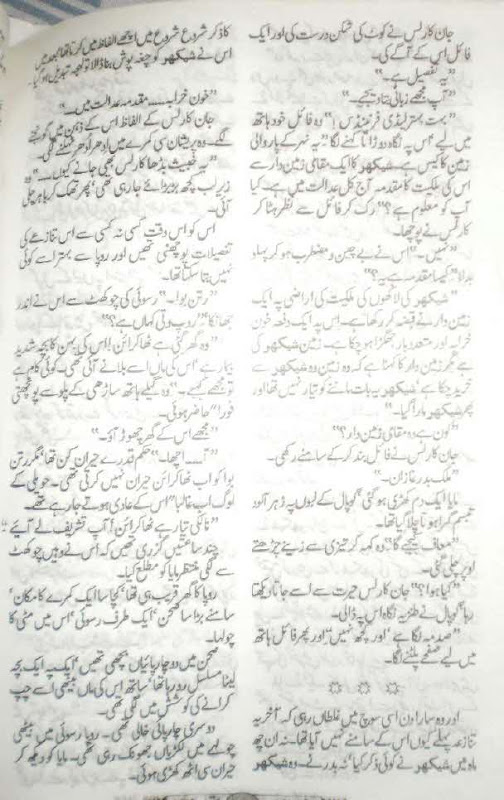 جان کارلس نے کوٹ کی شکن درست کی اور ایک
فائل اس کے آگے کی۔
”یہ تفصیل ہے۔“
”آپ مجھے زبانی بتا دیجیے۔“
”بہت بہتر لیڈی فرنینڈس!“ وہ فائل خود ہاتھ
میں لیے اس پہ نگاہ دوڑاتا کہنے لگا ”یہ نہر کے پار والی
زمین کا کیس ہے۔ شیکھر کا ایک مقامی زمین دار سے
اس کی ملکیت کا مقدمہ آج کل عدالت میں ہے۔ کیا
آپ کو معلوم ہے؟“ رک کر فائل سے نظر ہٹا کر
کارلس نے پوچھا۔
”نہیں۔“ اس نے بے چین و مضطرب ہو کر پہلو
بدلا ”کیا مقدمہ ہے یہ؟“
”شیکھر کی لاکھوں کی ملکیت کی اراضی پہ ایک
زمین دار نے قبضہ کر رکھا ہے۔ اس پہ ایک دفعہ خون
خرابہ اور متعدد بار جھگڑا ہو چکا ہے۔ وہ زمین شیکھر کی
ہے مگر زمین دار کا کہنا ہے کہ وہ زمین وہ شیکھر سے
خرید چکا ہے شیکھر یہ بات ماننے کو تیار نہیں تھا اور
پھر شیکھر مارا گیا۔“
”کون ہے وہ مقامی زمین دار؟“
جان کارلس نے فائل بند کر کے سامنے رکھی۔
”ملک بدر غازان۔“
مایا ایک دم کھڑی ہو گئی، گوپال کے لبوں پہ زہر آلود
تبسم گہرا ہوتا چلا گیا تھا۔
”معاف کیجیے گا“ وہ کہہ کر تیزی سے زینے چڑھتے
اوپر چلی گئی۔
”کیا ہوا؟“ جان کارلس حیرت سے اسے جاتا دیکھتا
رہا، گوپال نے طنزیہ نگاہ اس پہ ڈالی۔
”صدمہ لگا ہے، اور کچھ نہیں“ اور پھر فائل ہاتھ
میں لیے صفحے پلٹنے لگا۔
☆ ☆ ☆
اور وہ سارا دن اسی سوچ میں غلطاں رہی کہ آخر یہ
تنازعہ پہلے کیوں اس کے سامنے نہیں آیا تھا۔ نہ ان چھ
ماہ میں شیکھر نے کوئی ذکر کیا نہ بدر نے۔ وہ شیکھر
کا ذکر شروع شروع میں اچھے الفاظ میں کرتا تھا بعد میں
اس نے شیکھر کو چغہ پوش بنا ڈالا تو لہجہ تبدیل ہو گیا۔
”خون خرابہ۔۔۔۔ مقدمہ عدالت میں۔۔۔“
جان کارلس کے الفاظ اس کے ذہن میں گونجنے
لگے۔ وہ پریشان سی کمرے میں ادھر ادھر ٹہلنے لگی۔
”یہ خبیث بڈھا کارلس بھی جانے کیوں۔۔۔“ وہ
زیر لب کچھ بڑبڑائے جا رہی تھی، پھر تھک کر باہر چلی
آئی۔
اس کو اس وقت کسی نہ کسی سے اس تنازعے کی
تفصیلات پوچھنی تھیں اور روپا سے بہتر اسے کوئی
نہیں بتا سکتا تھا۔
”رتن بوا۔“ رسوئی کی چوکھٹ سے اس نے اندر
جھانکا ”روپ وتی کہاں ہے؟“
”وہ گھر گئی ہے ٹھاکرائن! اس کی بہن کا بچہ شدید
بیمار ہے، اس کی ماں اسے بلانے آئی تھی۔ کوئی کام ہے
تو مجھے کہیے۔“ وہ گیلے ہاتھ ساڑھی کے پلو سے پونچھتی
فوراً حاضر ہوئی۔
”مجھے اس کے گھر چھوڑ آؤ۔“
”آ۔۔۔ اچھا۔“ حکم قدرے حیران کن تھا، مگر رتن
بوا کو اب ٹھاکرائن حیران نہیں کرتی تھی۔ حویلی کے
لوگ اب غالباً اس کے عادی ہوتے جا رہے تھے۔
تیار ہے ٹھاکرائن! آپ تشریف لے آئیے“
چند ساعتیں گزری تھیں کہ اس نے وہیں چوکھٹ
سے لگی منتظر مایا کو مطلع کیا۔
روپا کا گھر قریب ہی تھا، کچا سا ایک کمرے کا مکان،
سامنے بڑا سا صحن، ایک طرف رسوئی، اس میں مٹی کا
چولہا۔
صحن میں دو چارپائیاں بچھی تھیں، ایک پہ ایک بچہ
لیٹا مسلسل رو رہا تھا، ساتھ اس کی ماں بیٹھی اسے چپ
کرانے کی کوشش میں لگی تھی۔
دوسری چارپائی خالی تھی۔ روپا رسوئی میں بیٹھی
چولہے میں لکڑیاں جھونک رہی تھی۔ مایا کو دیکھ کر
حیران سی اٹھ کھڑی ہوئی۔